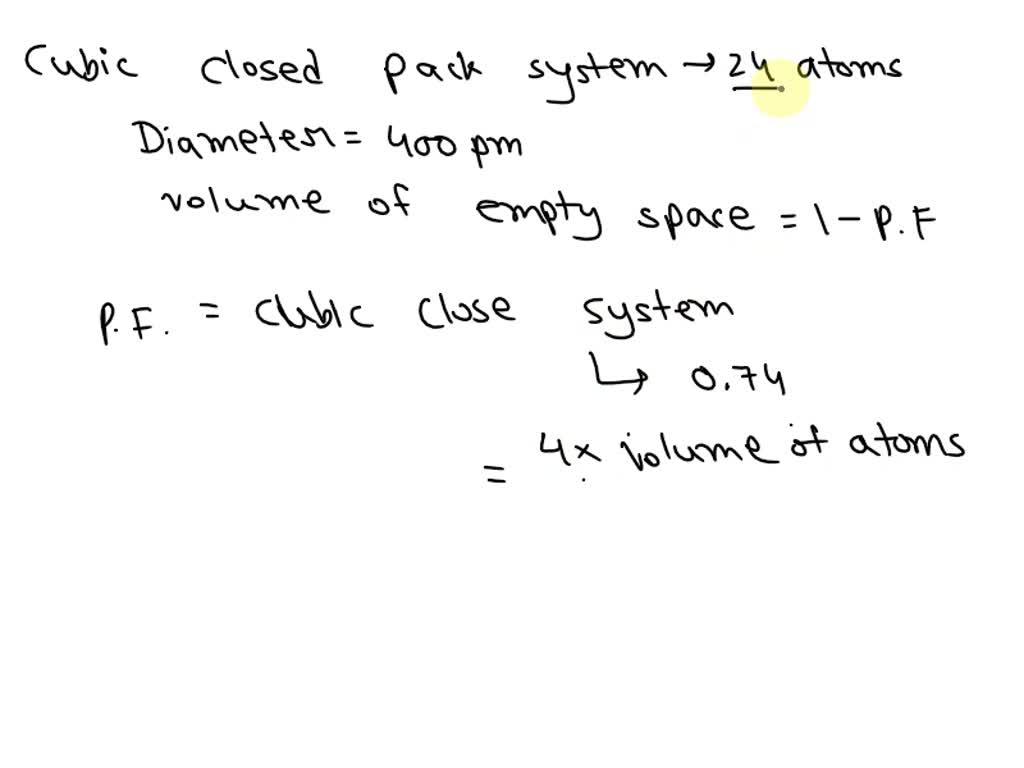 Cubic closed pack system → 24 atoms
Diameter = 400 pm
volume of empty space = 1 - P.F
P.F. = cubic close system
↳ 0.74
= 4x volume of atoms